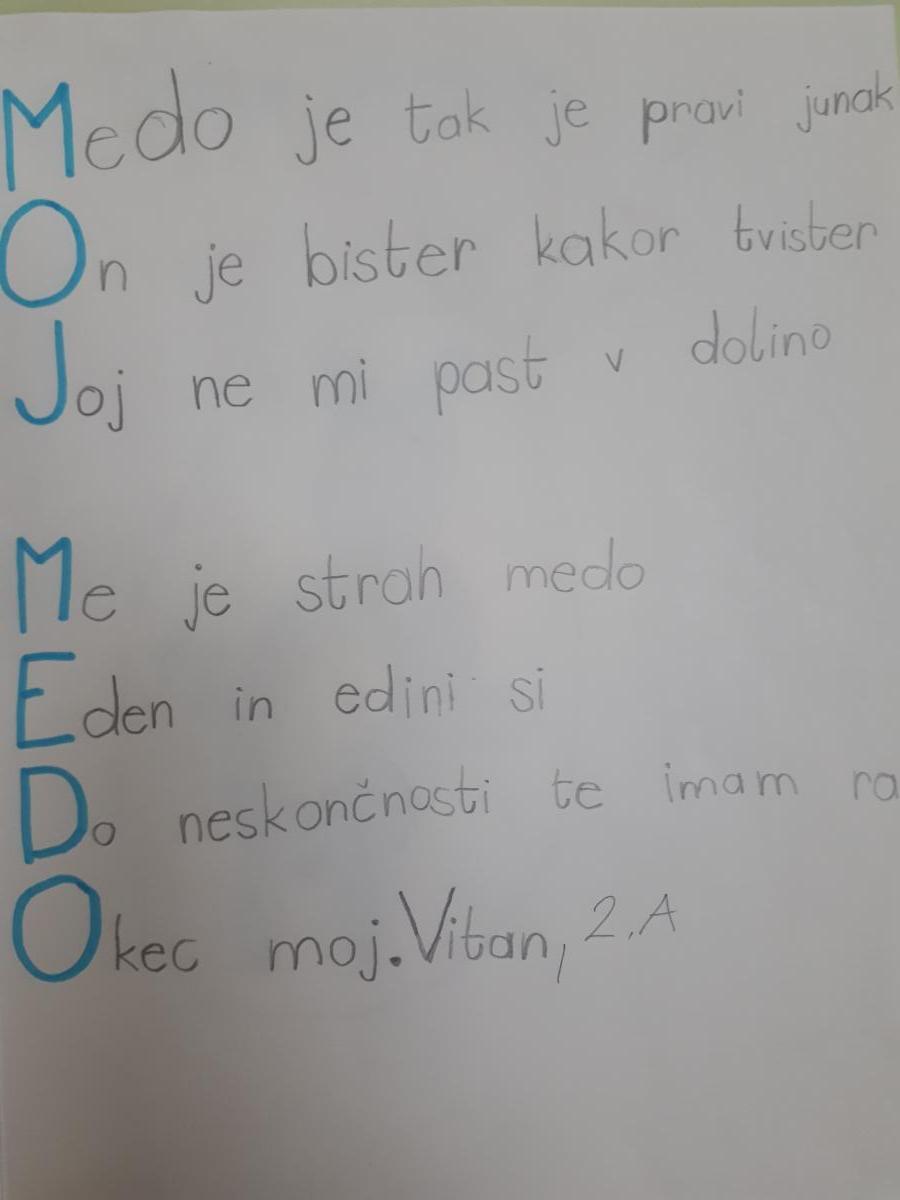 Medo je tak je pravi junak
On je bister kakor tvister
Joj ne mi past v dolino
Me je strah medo
Eden in edini si
Do neskončnosti te imam ra
Okec moj. Vitan, 2.A